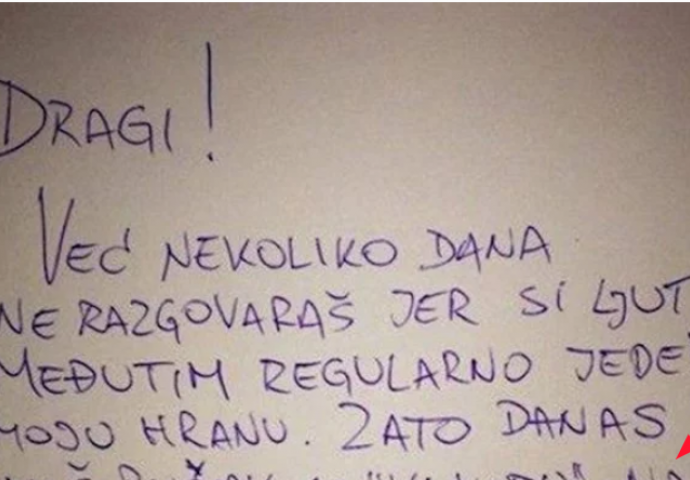 DRAGI!
VEĆ NEKOLIKO DANA
NE RAZGOVARAŠ JER SI LJUT
MEĐUTIM REGULARNO JEDE
MOJU HRANU. ZATO DANAS